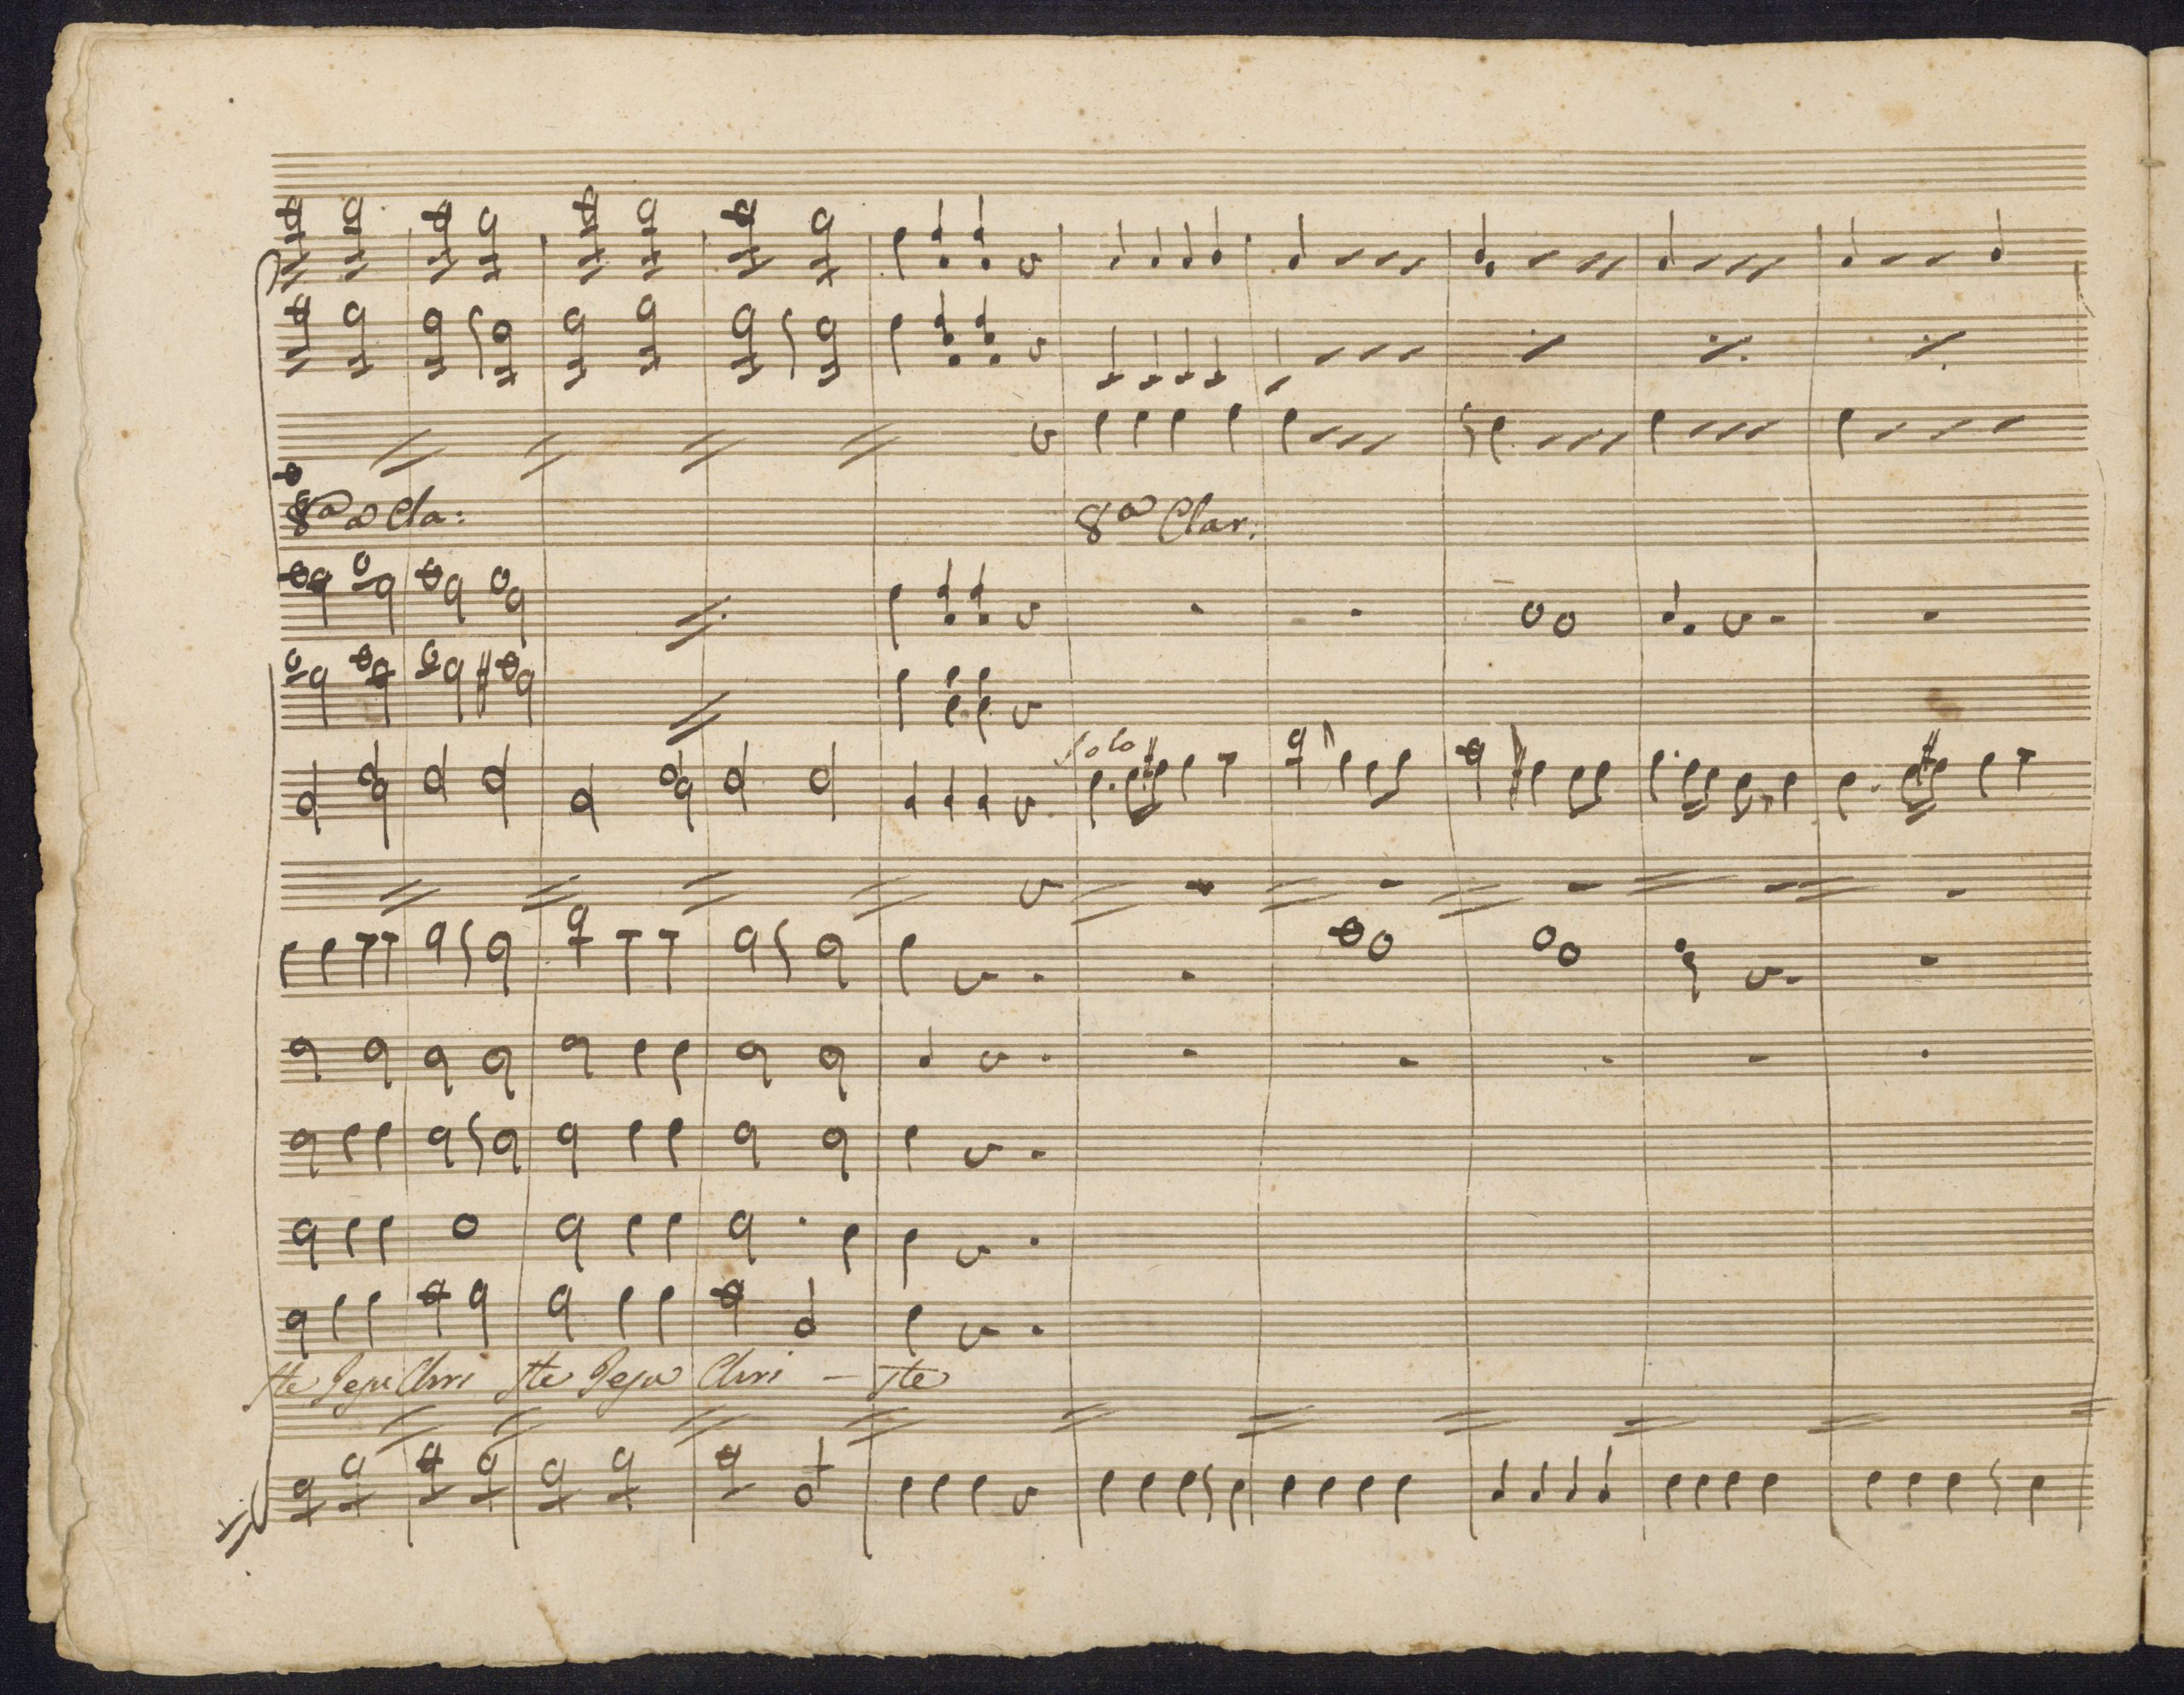 8a Cla:
8a Clar:
Solo
ste Jesu Chri ste Jesu Chri - ste